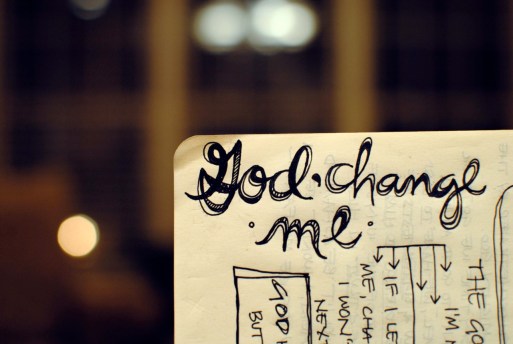 God, change
·me·
THE GO
I'M
IF I LE
ME, CHA
I WON'
NEX
GOD
BUT